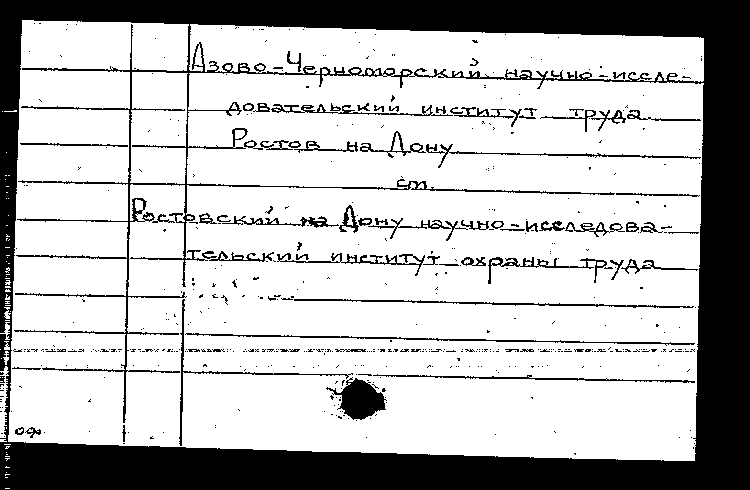 Азово-Черноморский научно-иссле-
довательский институт труда
Ростов на Дону
см.
Ростовский на Дону научно-исследова-
тельский институт охраны труда